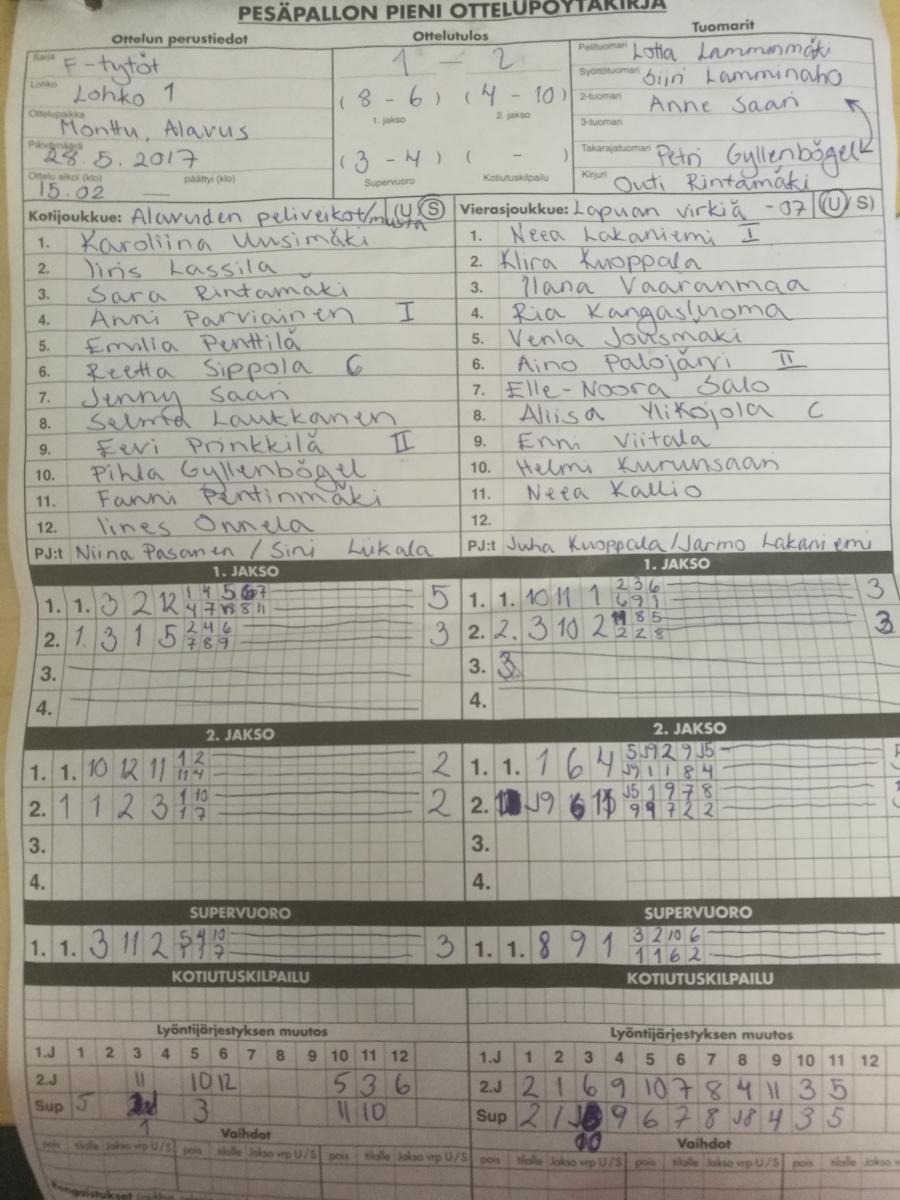 PESÄPALLON PIENI OTTELUPÖYTÄKIRJA
Ottelun perustiedot
Sarja F-tytöt
Lohko Lohko 1
Ottelupaikka Monttu, Alavus
Päivämäärä 28.5.2017
Ottelu alkoi (klo) 15.02 päättyi (klo)
Ottelutulos
1 - 2
(8 - 6) (4 - 10)
1. jakso 2. jakso
(3 - 4) ( - )
Supervuoro Kotiutuskilpailu
Tuomarit
Pelituomari Lotta Lamminmäki
Syöttötuomari Siiri Lamminaho
2-tuomari Anne Saari
3-tuomari
Takarajatuomari Petri Gyllenbögel
Kirjuri Outi Rintamäki
Kotijoukkue: Alavuden peliveikot/musta (U S)
1. Karoliina Uusimäki
2. Iiris Lassila
3. Sara Rintamäki
4. Anni Parviainen I
5. Emilia Penttilä
6. Reetta Sippola C
7. Jenny Saari
8. Selma Laukkanen
9. Eevi Prinkkilä II
10. Pihla Gyllenbögel
11. Fanni Pentinmäki
12. Iines Onnela
PJ:t Niina Pasanen / Sini Liikala
Vierasjoukkue: Lapuan virkiä -07 (U S)
1. Neea Lakaniemi I
2. Klira Kuoppala
3. Ilana Vaaranmaa
4. Ria Kangasluoma
5. Venla Jousmäki
6. Aino Palojärvi II
7. Elle-Noora Salo
8. Aliisa Ylikojola C
9. Enni Viitala
10. Helmi Kurunsaari
11. Neea Kallio
12.
PJ:t Juha Kuoppala/Jarmo Lakaniemi
1. JAKSO
1. 1. 3 2 12 1 4 5 6 7
4 7 8 11 5
2. 1. 3 1 5 2 4 6
7 8 9 3
3.
4.
1. JAKSO
1. 1. 10 11 1 2 3 6
6 9 1 3
2. 2. 3 10 2 8 5
2 2 8 3
3. 3.
4.
2. JAKSO
1. 1. 10 12 11 1 2
11 4 2
2. 1 1 2 3 1 10
1 7 2
3.
4.
2. JAKSO
1. 1. 1 6 4 5 J9 2 9 J5
J9 1 1 8 4
2. J9 6 J5 1 9 7 8
9 9 7 2 2
3.
4.
SUPERVUORO
1. 1. 3 11 2 5 4 10
1 1 7 3
SUPERVUORO
1. 1. 8 9 1 3 2 10 6
1 1 6 2
KOTIUTUSKILPAILU
KOTIUTUSKILPAILU
Lyöntijärjestyksen muutos
1.J 1 2 3 4 5 6 7 8 9 10 11 12
2.J 11 10 12 5 3 6
Sup 5 3 11 10
1
Lyöntijärjestyksen muutos
1.J 1 2 3 4 5 6 7 8 9 10 11 12
2.J 2 1 6 9 10 7 8 4 11 3 5
Sup 2 1 9 6 7 8 J8 4 3 5
10
Vaihdot
pois tilalle Jakso vrp U/S pois tilalle Jakso vrp U/S pois tilalle Jakso vrp U/S
Vaihdot
pois tilalle Jakso vrp U/S pois tilalle Jakso vrp U/S pois tilalle Jakso vrp U/S